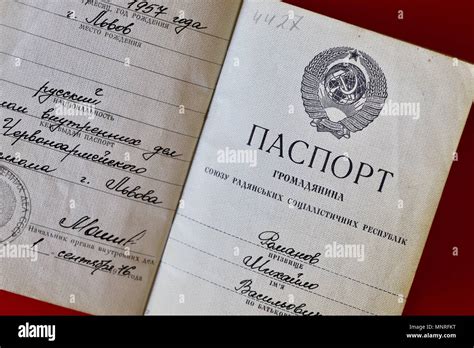 1957 года
МЕСЯЦ, ГОД РОЖДЕНИЯ
г. Львов
МЕСТО РОЖДЕНИЯ
русский
НАЦИОНАЛЬНОСТЬ
внутренних дел
КЕМ ВЫДАН ПАСПОРТ
Червоноармейского
г. Львова
Начальник органа внутренних дел
1 сентября 76
4427
ПАСПОРТ
ГРОМАДЯНИНА
СОЮЗУ РАДЯНСЬКИХ СОЦІАЛІСТИЧНИХ РЕСПУБЛІК
Романов
ПРІЗВИЩЕ
Михайло
ІМ'Я
Васильович
ПО БАТЬКОВІ
alamy
alamy
alamy
alamy
alamy
alamy
Image ID: MNRFKT
www.alamy.com